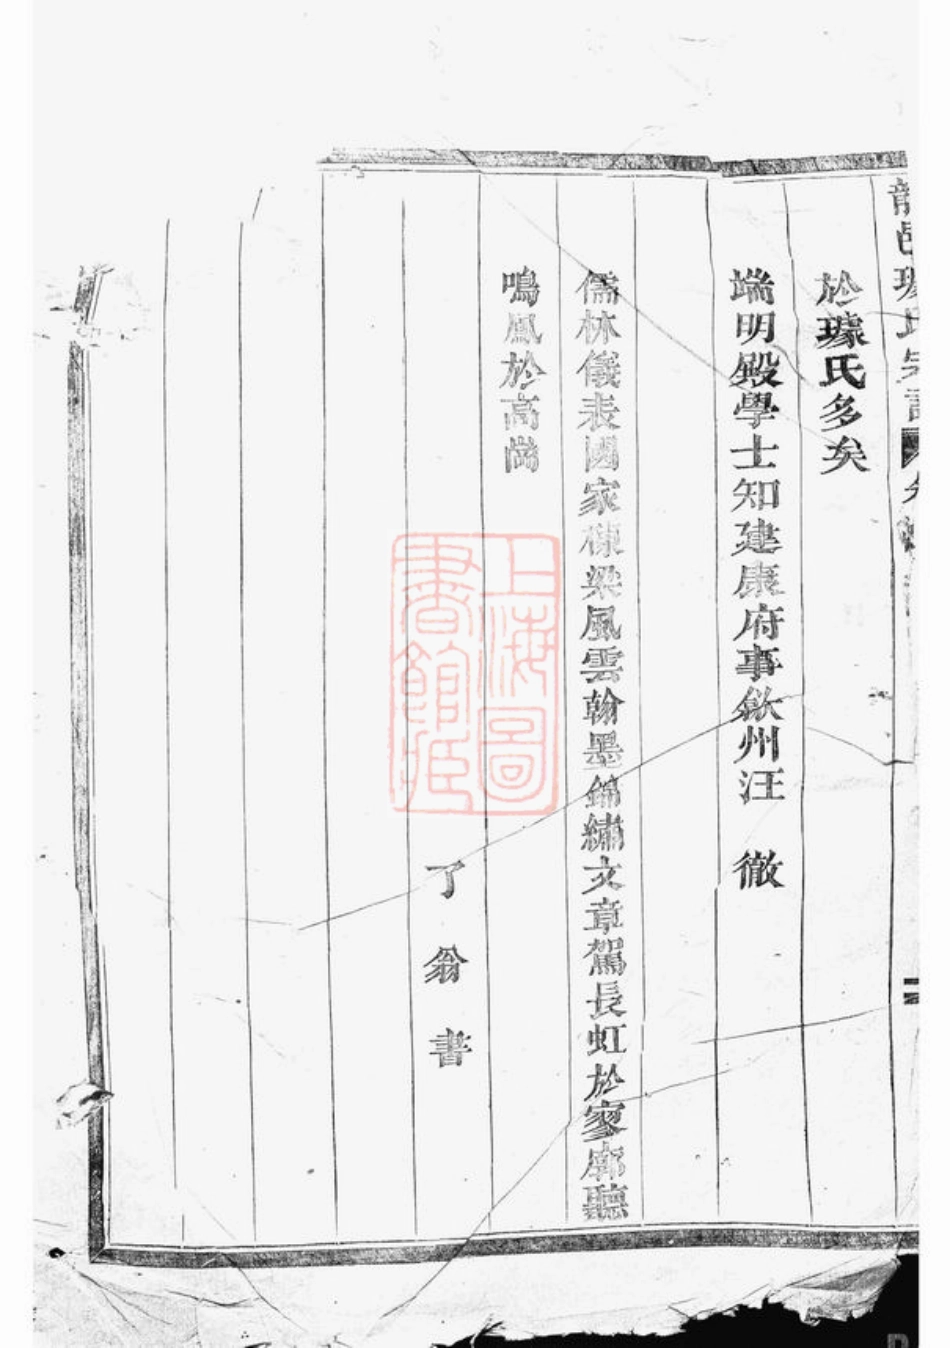 於璩氏多矣
端明殿學士知建康府事歙州汪 徹
儒林儀表國家棟梁風雲翰墨錦繡文章駕長虹於寥廓聽
鳴鳳於高崗
了翁書
上海圖
書館藏